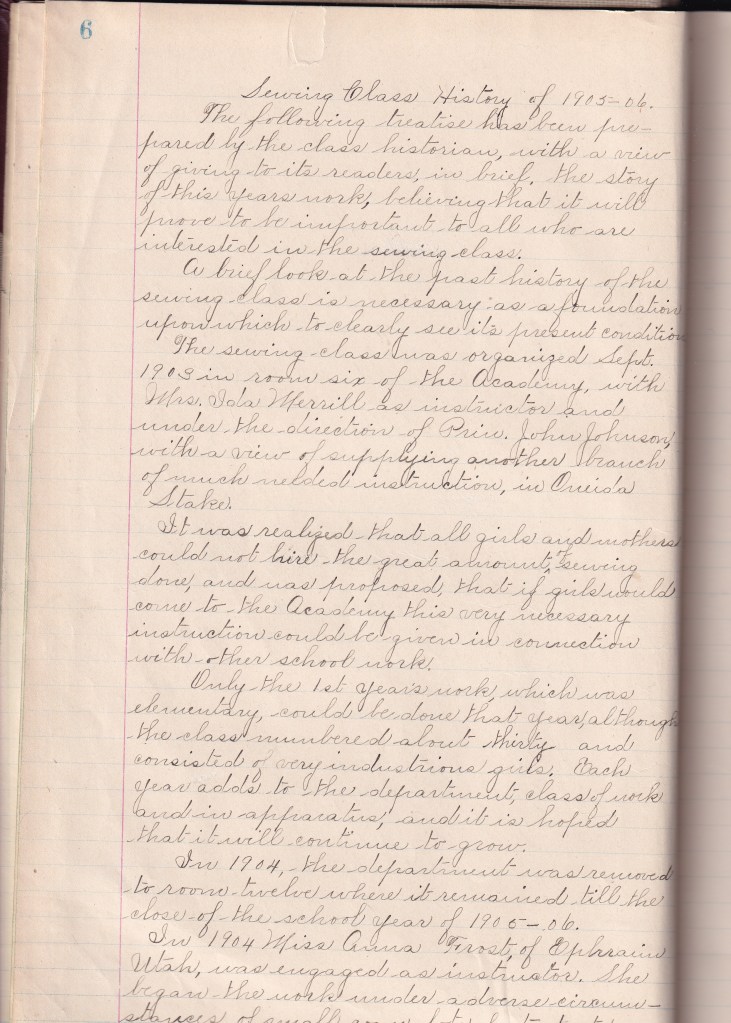 6
Sewing Class History of 1905-06.
The following treatise has been pre-
pared by the class historian, with a view
of giving to its readers, in brief, the story
of this years work, believing that it will
prove to be important to all who are
interested in the sewing class.
A brief look at the past history of the
sewing class is necessary as a foundation
upon which to clearly see its present condition
The sewing class was organized Sept.
1903 in room six of the Academy, with
Mrs. Ida Merrill as instructor and
under the direction of Prin. John Johnson,
with a view of supplying another branch
of much needed instruction, in Oneida
Stake.
It was realized that all girls and mothers
could not hire the great amount, of sewing
done, and was proposed, that if girls would
come to the Academy this very necessary
instruction could be given in connection
with other school work.
Only the 1st year's work, which was
elementary, could be done that year, although
the class numbered about thirty and
consisted of very industrious girls. Each
year adds to the department, class of work
and in apparatus, and it is hoped
that it will continue to grow.
In 1904, the department was removed
to room twelve where it remained till the
close of the school year of 1905-06.
In 1904 Miss Anna Frost, of Ephraim
Utah, was engaged as instructor. She
began the work under adverse circum-
stances of small